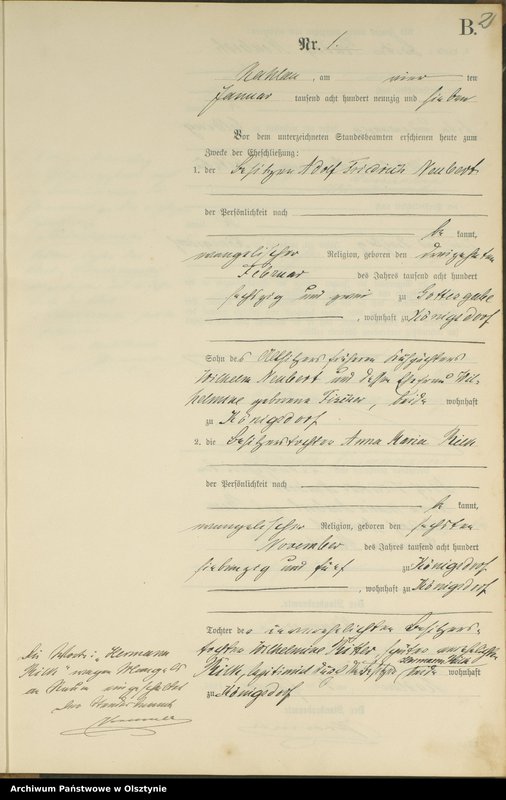 B. 2
Nr. 1.
am vier ten
Januar tausend acht hundert neunzig und sieben
Vor dem unterzeichneten Standesbeamten erschienen heute zum
Zwecke der Eheschließung:
1. der Besitzer Adolf Friedrich Neubert
der Persönlichkeit nach
be kannt,
evangelischer Religion, geboren den
Februar des Jahres tausend acht hundert
sechszig und zwei zu Gottesgabe
, wohnhaft zu Königsdorf
Sohn des Altsitzers früheren
Wilhelm Neubert und dessen Ehefrau Wil-
helmine geborene , beide wohnhaft
zu Königsdorf
2. die Besitzertochter Anna Maria
der Persönlichkeit nach
be kannt,
evangelischer Religion, geboren den sechsten
November des Jahres tausend acht hundert
siebenzig und fünf zu Königsdorf
, wohnhaft zu Königsdorf
Tochter der unverehelichten Besitzers-
tochter Wilhelmine später verehelichten
legitimirt durch Hermann beide wohnhaft
zu Königsdorf
Die Worte: "Hermann
" wegen Mangels
an Raum eingeschaltet
Der Standesbeamte
Archiwum Państwowe w Olsztynie